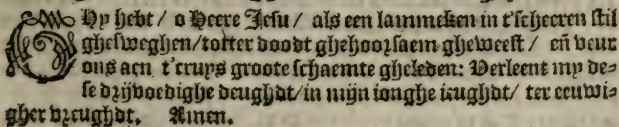 GHy hebt / o Heere Jesu / als een lammeken in t'scheeren stil
ghesweghen / totter doodt ghehoorsaem gheweest / eñ veur
ons aen t'cruys groote schaemte gheleden: Verleent my de-
se drijvoedighe deughdt / in mijn ionghe ieughdt / ter eeuwi-
gher vreughdt. Amen.